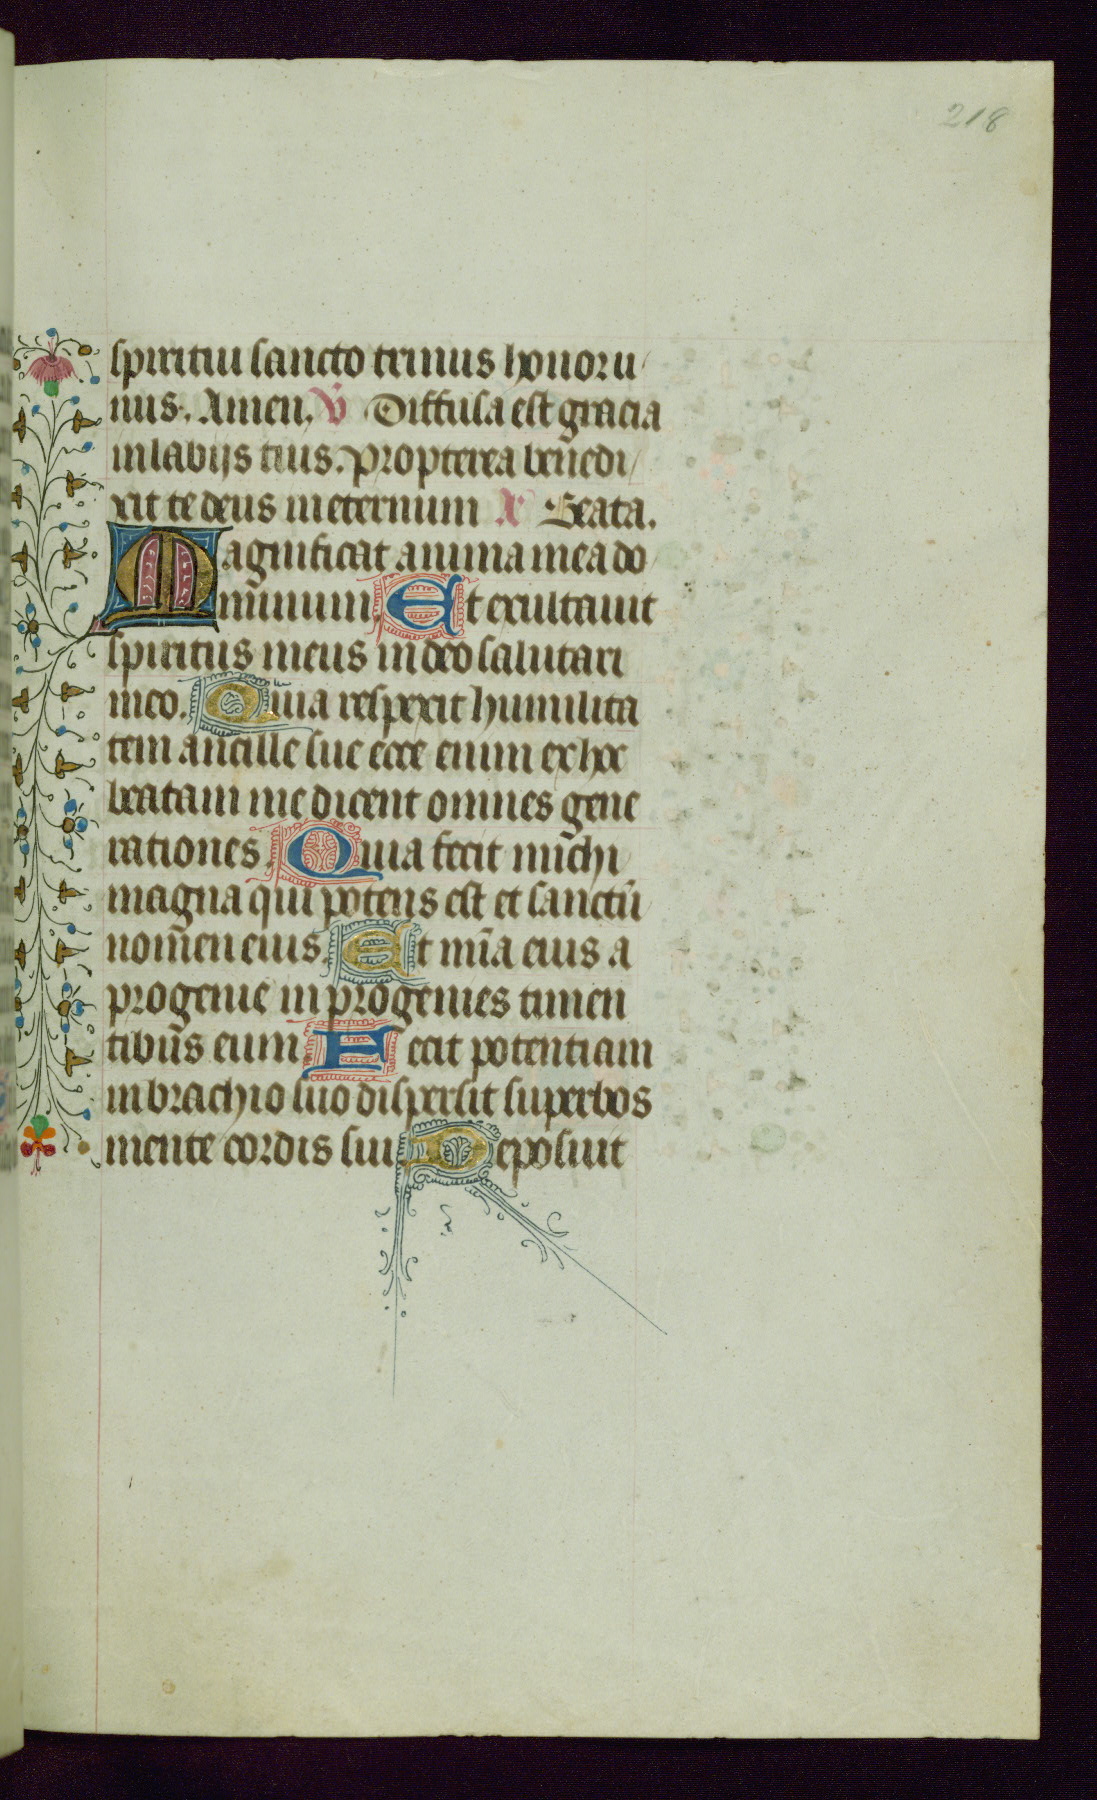 218
spiritui sancto trinus honoru
nus. Amen. V Diffusa est gracia
in labijs tuis. Propterea benedi
xit te deus in eternum A Beata.
Magnificat anima mea do
minum. Et exultauit
spiritus meus in deo salutari
meo. Quia respexit humilita
tem ancille sue ecce enim ex hoc
beatam me dicent omnes gene
rationes. Quia fecit michi
magna qui potens est et sanctū
nomen eius. Et mīa eius a
progenie in progenies timen
tibus eum Fecit potentiam
in brachio suo dispersit superbos
mente cordis sui Deposuit